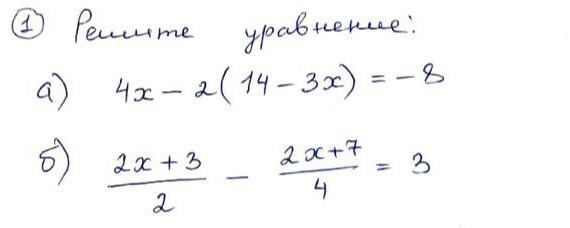 ① Решите уравнение:
а) 4x − 2(14 − 3x) = −8
б) (2x + 3)/2 − (2x + 7)/4 = 3